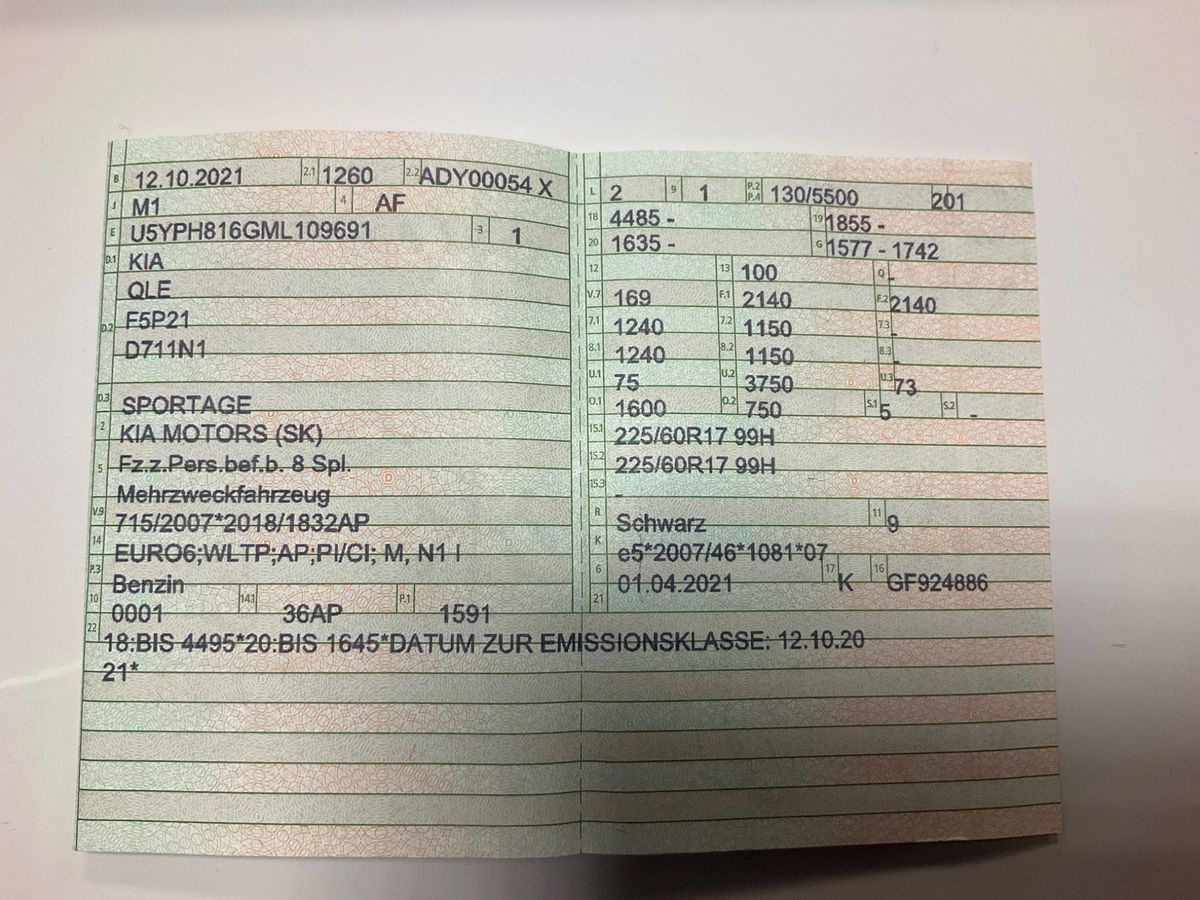 B 12.10.2021 2.1 1260 2.2 ADY00054 X
J M1 4 AF
E U5YPH816GML109691 3 1
D.1 KIA
QLE
D.2 F5P21
D711N1
D.3 SPORTAGE
2 KIA MOTORS (SK)
5 Fz.z.Pers.bef.b. 8 Spl.
Mehrzweckfahrzeug
V.9 715/2007*2018/1832AP
14 EURO6;WLTP;AP;PI/CI; M, N1 I
P.3 Benzin
10 0001 14.1 36AP P.1 1591
L 2 9 1 P.2 P.4 130/5500 201
18 4485 - 19 1855 -
20 1635 - G 1577 - 1742
12 13 100 Q -
V.7 169 F.1 2140 F.2 2140
7.1 1240 7.2 1150 7.3 -
8.1 1240 8.2 1150 8.3 -
U.1 75 U.2 3750 U.3 73
O.1 1600 O.2 750 S.1 5 S.2 -
15.1 225/60R17 99H
15.2 225/60R17 99H
15.3 -
R Schwarz 11 9
K e5*2007/46*1081*07
6 01.04.2021 17 K 16 GF924886
21
22 18:BIS 4495*20:BIS 1645*DATUM ZUR EMISSIONSKLASSE: 12.10.20
21*